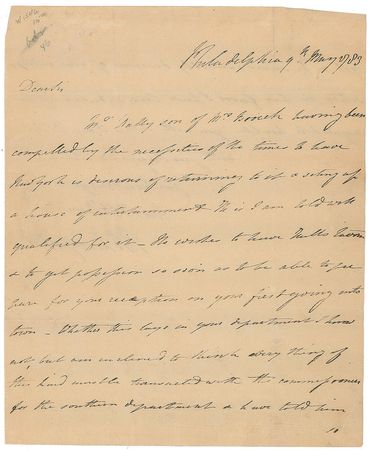 Philadelphia 9th May 1783
Dear Sir
Mr. son of Mrs. having been
compelled by the necessities of the times to leave
New York is desirous of returning to it & seting up
a house of entertainment He is I am told well
qualified for it – He wishes to have Tavern
& to get possession so soon as to be able to pre
pare for your reception on your first going into
town – Whether this lays in your department I know
not, but am inclined to think every thing of
this kind must be transacted with the commissioners
for the southern department & have told him
so